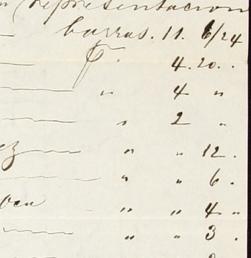 representacion
barras. 11. 6/24
4. 20.
" 4 "
" 2 "
ez " " 12.
" " 6.
" " 4 "
" " 3.